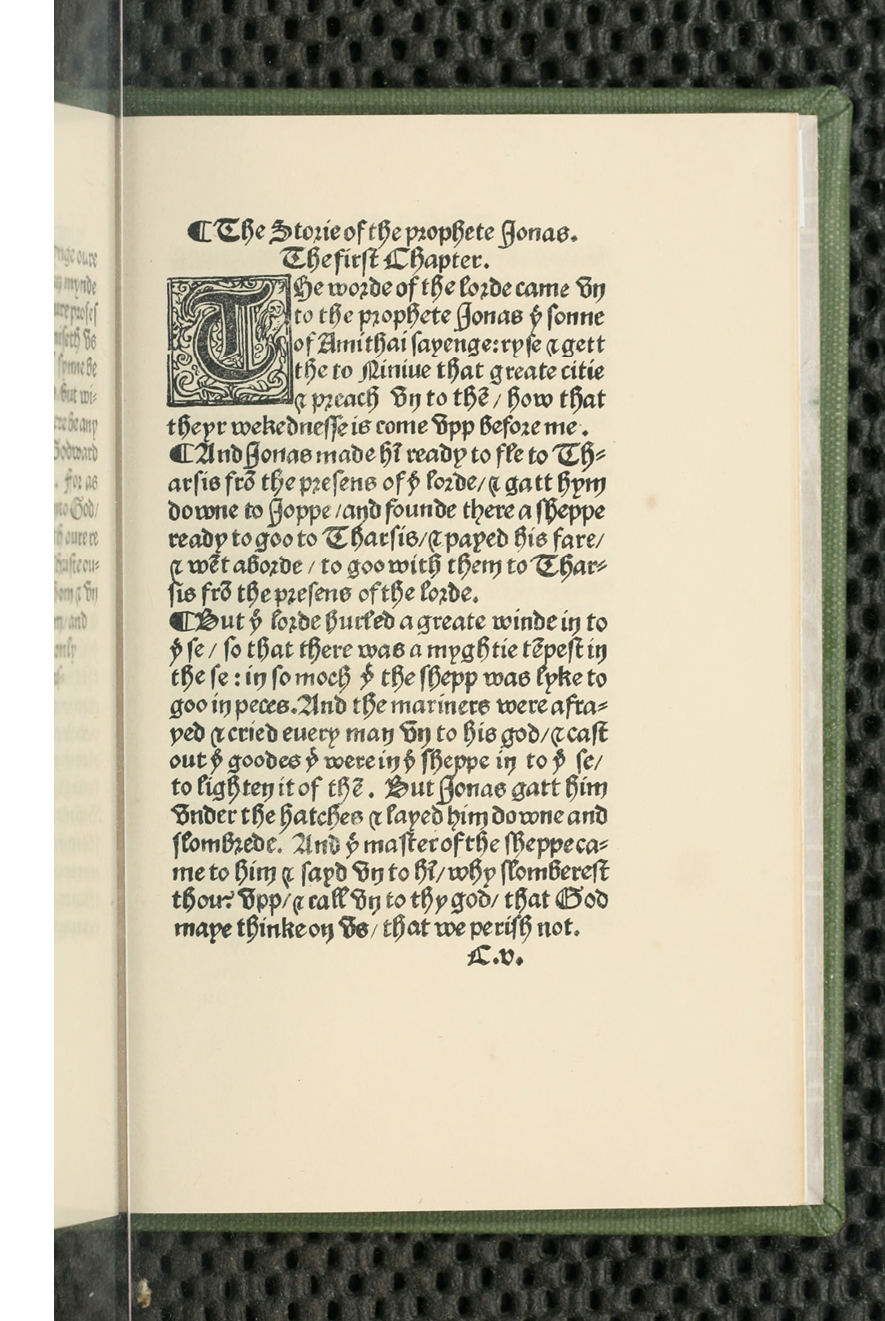 ¶The Storie of the prophete Jonas.
The first Chapter.
The worde of the lorde came vn
to the prophete Jonas ẏ sonne
of Amithai sayenge: ryse & gett
the to Niniue that greate citie
& preach vn to thē / how that
theyr wekednesse is come vpp before me.
¶And Jonas made hī ready to fle to Th⸗
arsis frō the presens of ẏ lorde / & gatt hym
downe to Joppe / and founde there a sheppe
ready to goo to Tharsis / & payed his fare /
& wēt aborde / to goo with them to Thar⸗
sis frō the presens of the lorde.
¶But ẏ lorde hurled a greate winde in to
ẏ se / so that there was a myghtie tēpest in
the se : in so moch ẏ the shepp was lyke to
goo in peces. And the mariners were afra⸗
yed & cried euery man vn to his god / & cast
out ẏ goodes ẏ were in ẏ sheppe in to ẏ se /
to lighten it of thē. But Jonas gatt him
vnder the hatches & layed him downe and
slombrede. And ẏ master of the sheppe ca⸗
me to him & sayd vn to hī / why slomberest
thou? vpp / & call vn to thy god / that God
maye thinke on vs / that we perish not.
C.v.
nge oure
mynde
vs
synne be
but wi⸗
re be any
Godward
. For as
to God /
oure re
vn
and
only